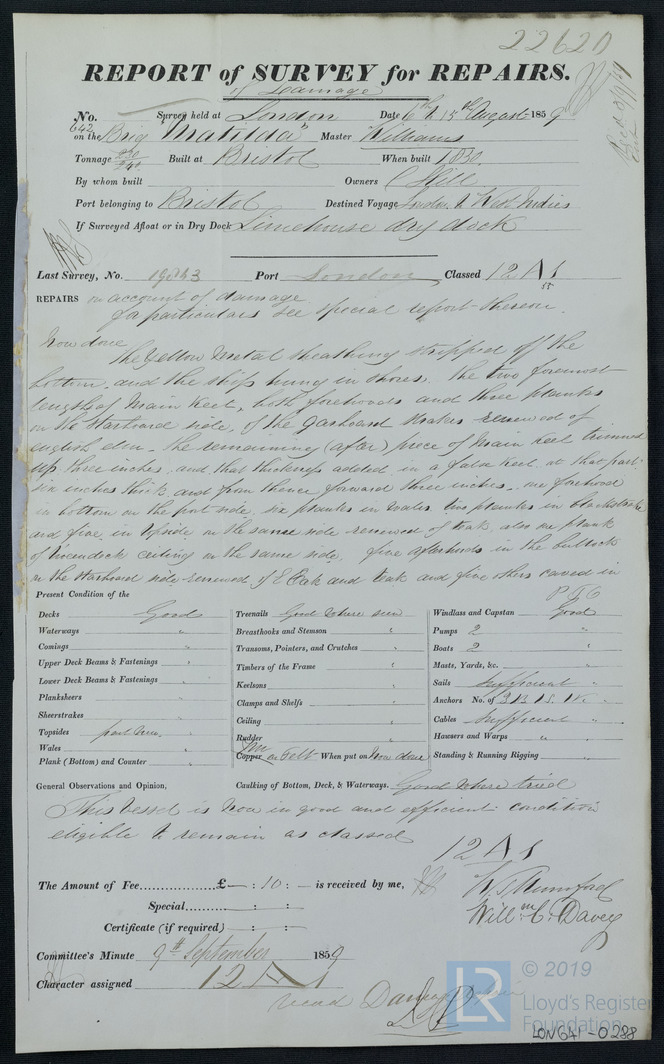 22620
REPORT of SURVEY for REPAIRS.
of Damage
No. 642 Survey held at London Date 6th & 15th August 1859
on the Brig "Matilda" Master Williams
Tonnage 230 Built at Bristol When built 1830
By whom built Owners C Hill
Port belonging to Bristol Destined Voyage London to West Indies
If Surveyed Afloat or in Dry Dock Limehouse dry dock
Last Survey, No. 19843 Port London Classed 12 A1
55
REPAIRS on account of damage
for particulars see special report thereon.
Now done
The Yellow Metal sheathing stripped off the
bottom, and the ship hung in shores. The two foremost
lengths of Main Keel, both forehoods and three planks
on the starboard side, of the garboard strakes renewed of
english elm. the remaining (after) piece of Main Keel trimmed
up three inches, and that thickness added in a false Keel at that part
six inches thick and from thence forward three inches. one forehood
in bottom on the port side. six planks in wales two planks in blackstrake
and five in topside on the same side renewed of teak also one plank
of ceiling on the same side, five afterhoods in the buttock
on the starboard side renewed of E Oak and teak and five others caved in
P T O
Present Condition of the
Decks Good
Waterways "
Comings "
Upper Deck Beams & Fastenings "
Lower Deck Beams & Fastenings "
Planksheers "
Sheerstrakes "
Topsides part new "
Wales "
Plank (Bottom) and Counter "
Treenails Good where seen
Breasthooks and Stemson "
Transoms, Pointers, and Crutches "
Timbers of the Frame "
Keelsons "
Clamps and Shelfs "
Ceiling "
Rudder "
Copper YM on Felt When put on Now done
Windlass and Capstan Good
Pumps 2 "
Boats 2 "
Masts, Yards, &c. "
Sails sufficient "
Anchors No. of 3 B 1 S. 1 K. "
Cables sufficient "
Hawsers and Warps "
Standing & Running Rigging "
General Observations and Opinion, Caulking of Bottom, Deck, & Waterways. Good where tried
This vessel is now in good and efficient condition
eligible to remain as classed
12 A1
The Amount of Fee £ — : 10 : — is received by me,
W. Mumford
Special — : — : —
Willm C. Davey
Certificate (if required) — : — : —
Committee's Minute 9th September 1859
Character assigned 12 A1
LR © 2019
Lloyd's Register
Foundation
LON641-0288